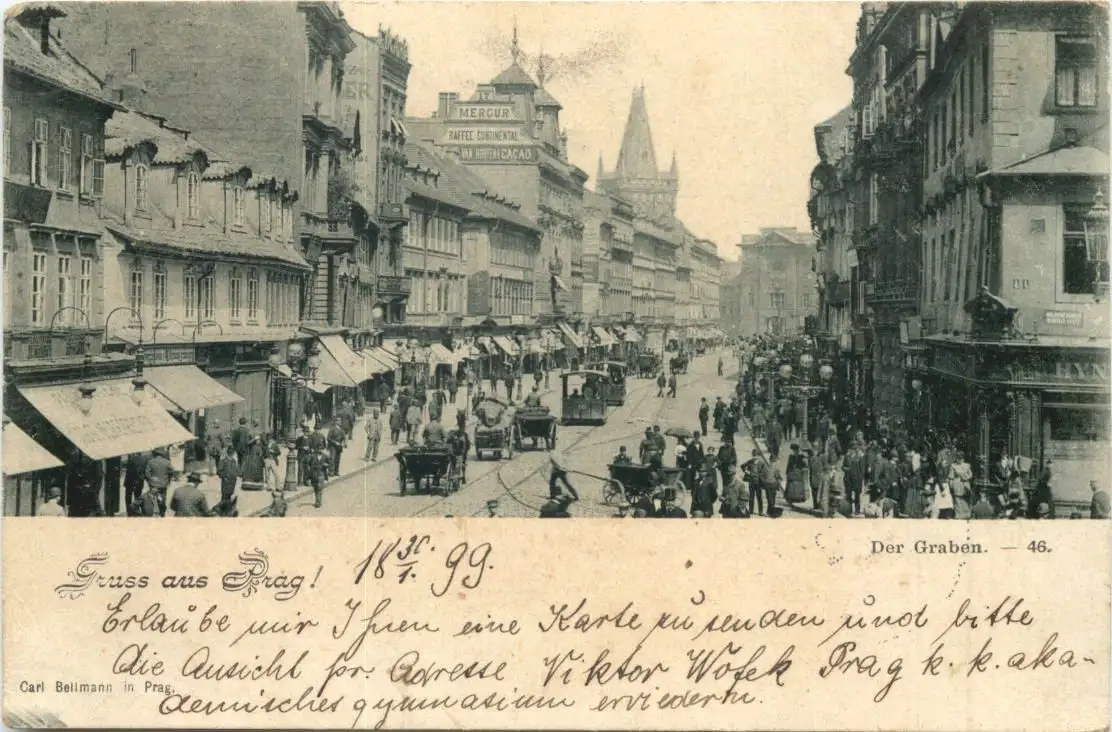 MERCUR
KAFFEE CONTINENTAL
VAN HOUTEN'S CACAO
Der Graben. — 46.
Gruss aus Prag! 18 30./1. 99.
Erlaube mir Ihnen eine Karte zu senden und bitte
die Ansicht pr. Adresse Viktor Prag k. k. aka-
Carl Bellmann in Prag.
demisches gymnasium erviedern.